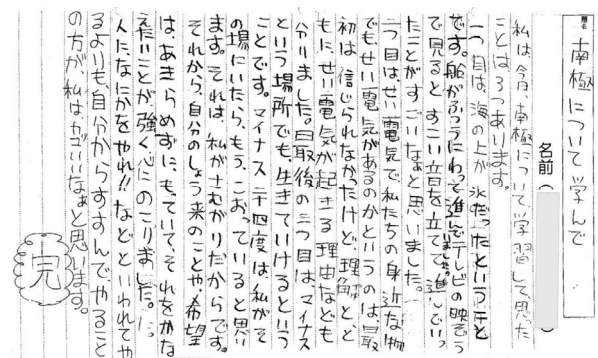 題名
南極について学んで
名前（　）
私は、今日、南極について学習して、思った
ことは3つあります。
一つ目は、海の上が氷だったということ
です。船がふつうにわって進んでテレビの映ぞう
で見ると、すごい音を立てて進んでいっ
たことがすごいなぁと思いました。
二つ目は、せい電気で私たちの身近な物
でも、せい電気があるのかというのは、最
初は信じられなかったけど、理角いと、と
もに、せい電気が起きる理由なども
分りました。最後の三つ目は、マイナス
という場所でも、生きていけるという
ことです。マイナス二十四度は、私がそ
の場にいたら、もう、こおっていると思い
ます。それは、私がさむがりだからです。
それから、自分のしょう来のことや、希望
は、あきらめずに、もっていて、それをかな
えたいことが強く心にのこりました。
人に、なにかをやれ!!などといわれてや
るよりも、自分からすすんでやること
の方が、私はかっこいいなぁと思います。
完